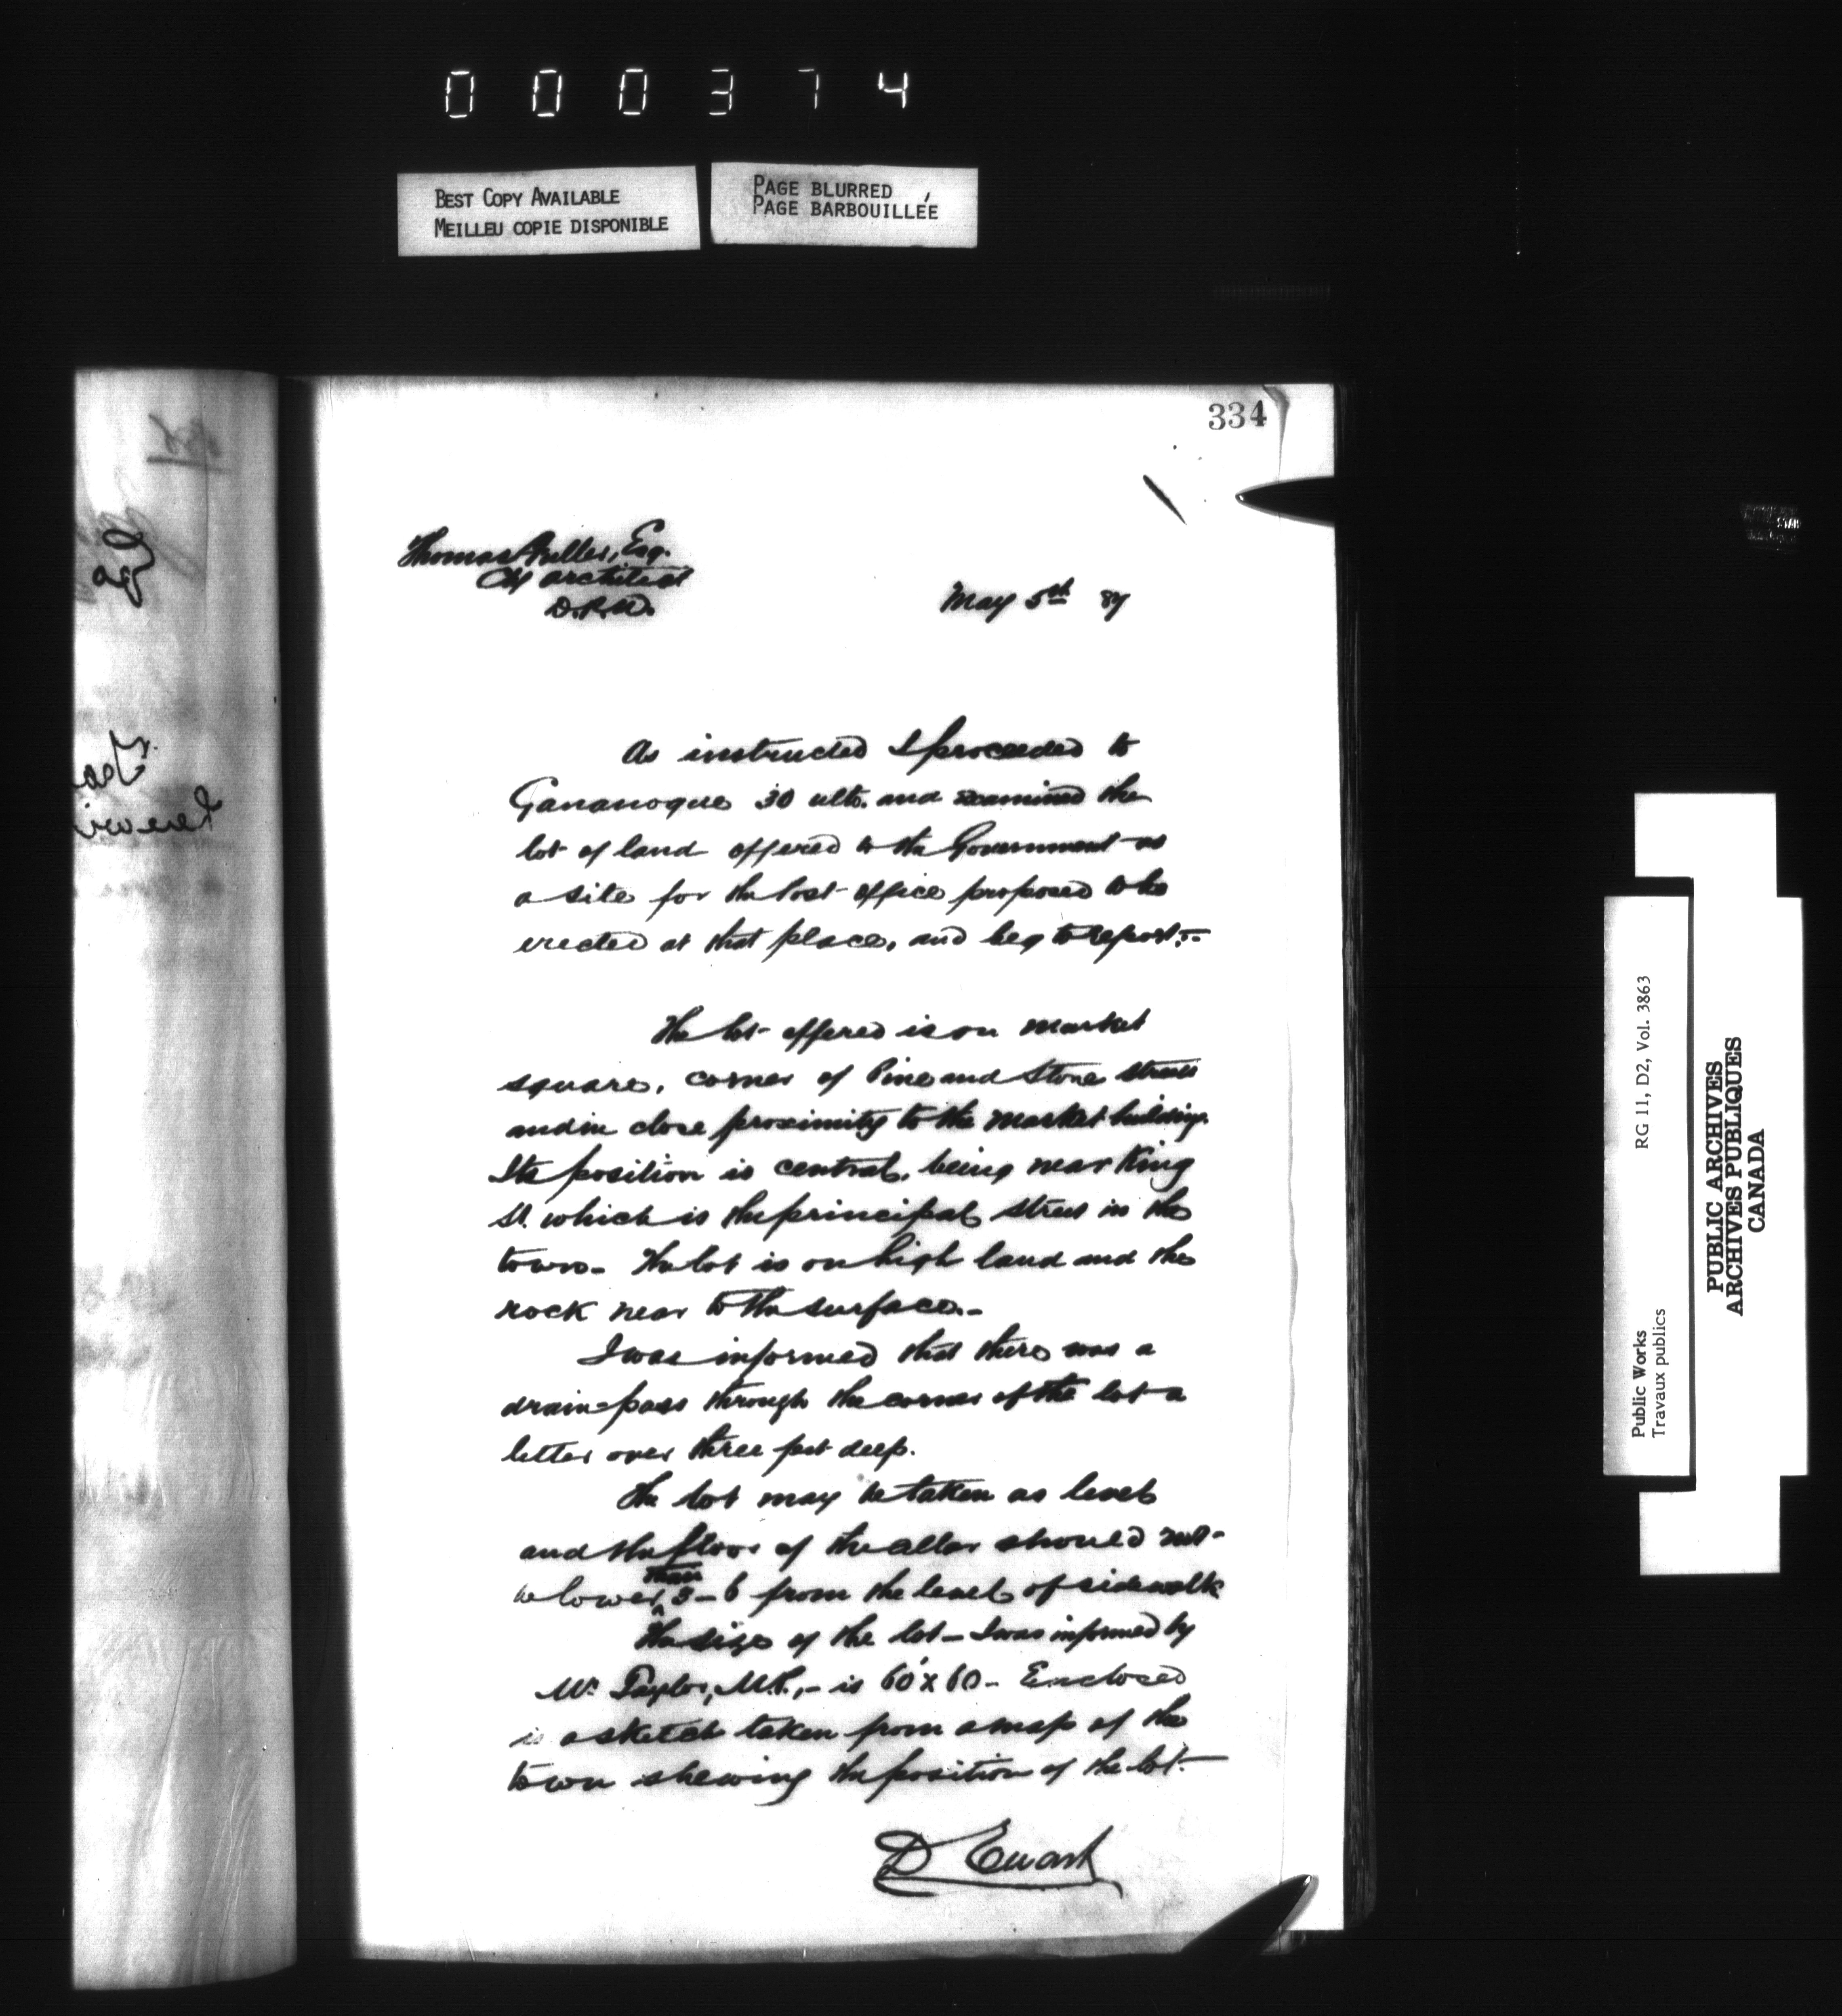 000374
BEST COPY AVAILABLE
MEILLEU COPIE DISPONIBLE
PAGE BLURRED
PAGE BARBOUILLÉE
334
Thomas Fuller, Esq.
Chf architect
D.P.W.
May 5th 87
As instructed I proceeded to
Gananoque 30 ulto. and examined the
lot of land offered to the Government as
a site for the Post office proposed to be
erected at that place, and beg to report:-
The lot offered is on market
square, corner of Pine and Stone streets
and in close proximity to the market building.
Its position is central, being near King
St. which is the principal street in the
town - The lot is on high land and the
rock near to the surface.-
I was informed that there was a
drain-pass through the corner of the lot a
letter over three feet deep.
The lot may be taken as level
and the floor of the cellar should not
be lower than 3-6 from the level of sidewalk
The size of the lot - I was informed by
Mr. Taylor, M.P., - is 60'x60 - Enclosed
is a sketch taken from a map of the
town shewing the position of the lot.
D Ewart
Public Works
Travaux publics
RG 11, D2, Vol. 3863
PUBLIC ARCHIVES
ARCHIVES PUBLIQUES
CANADA